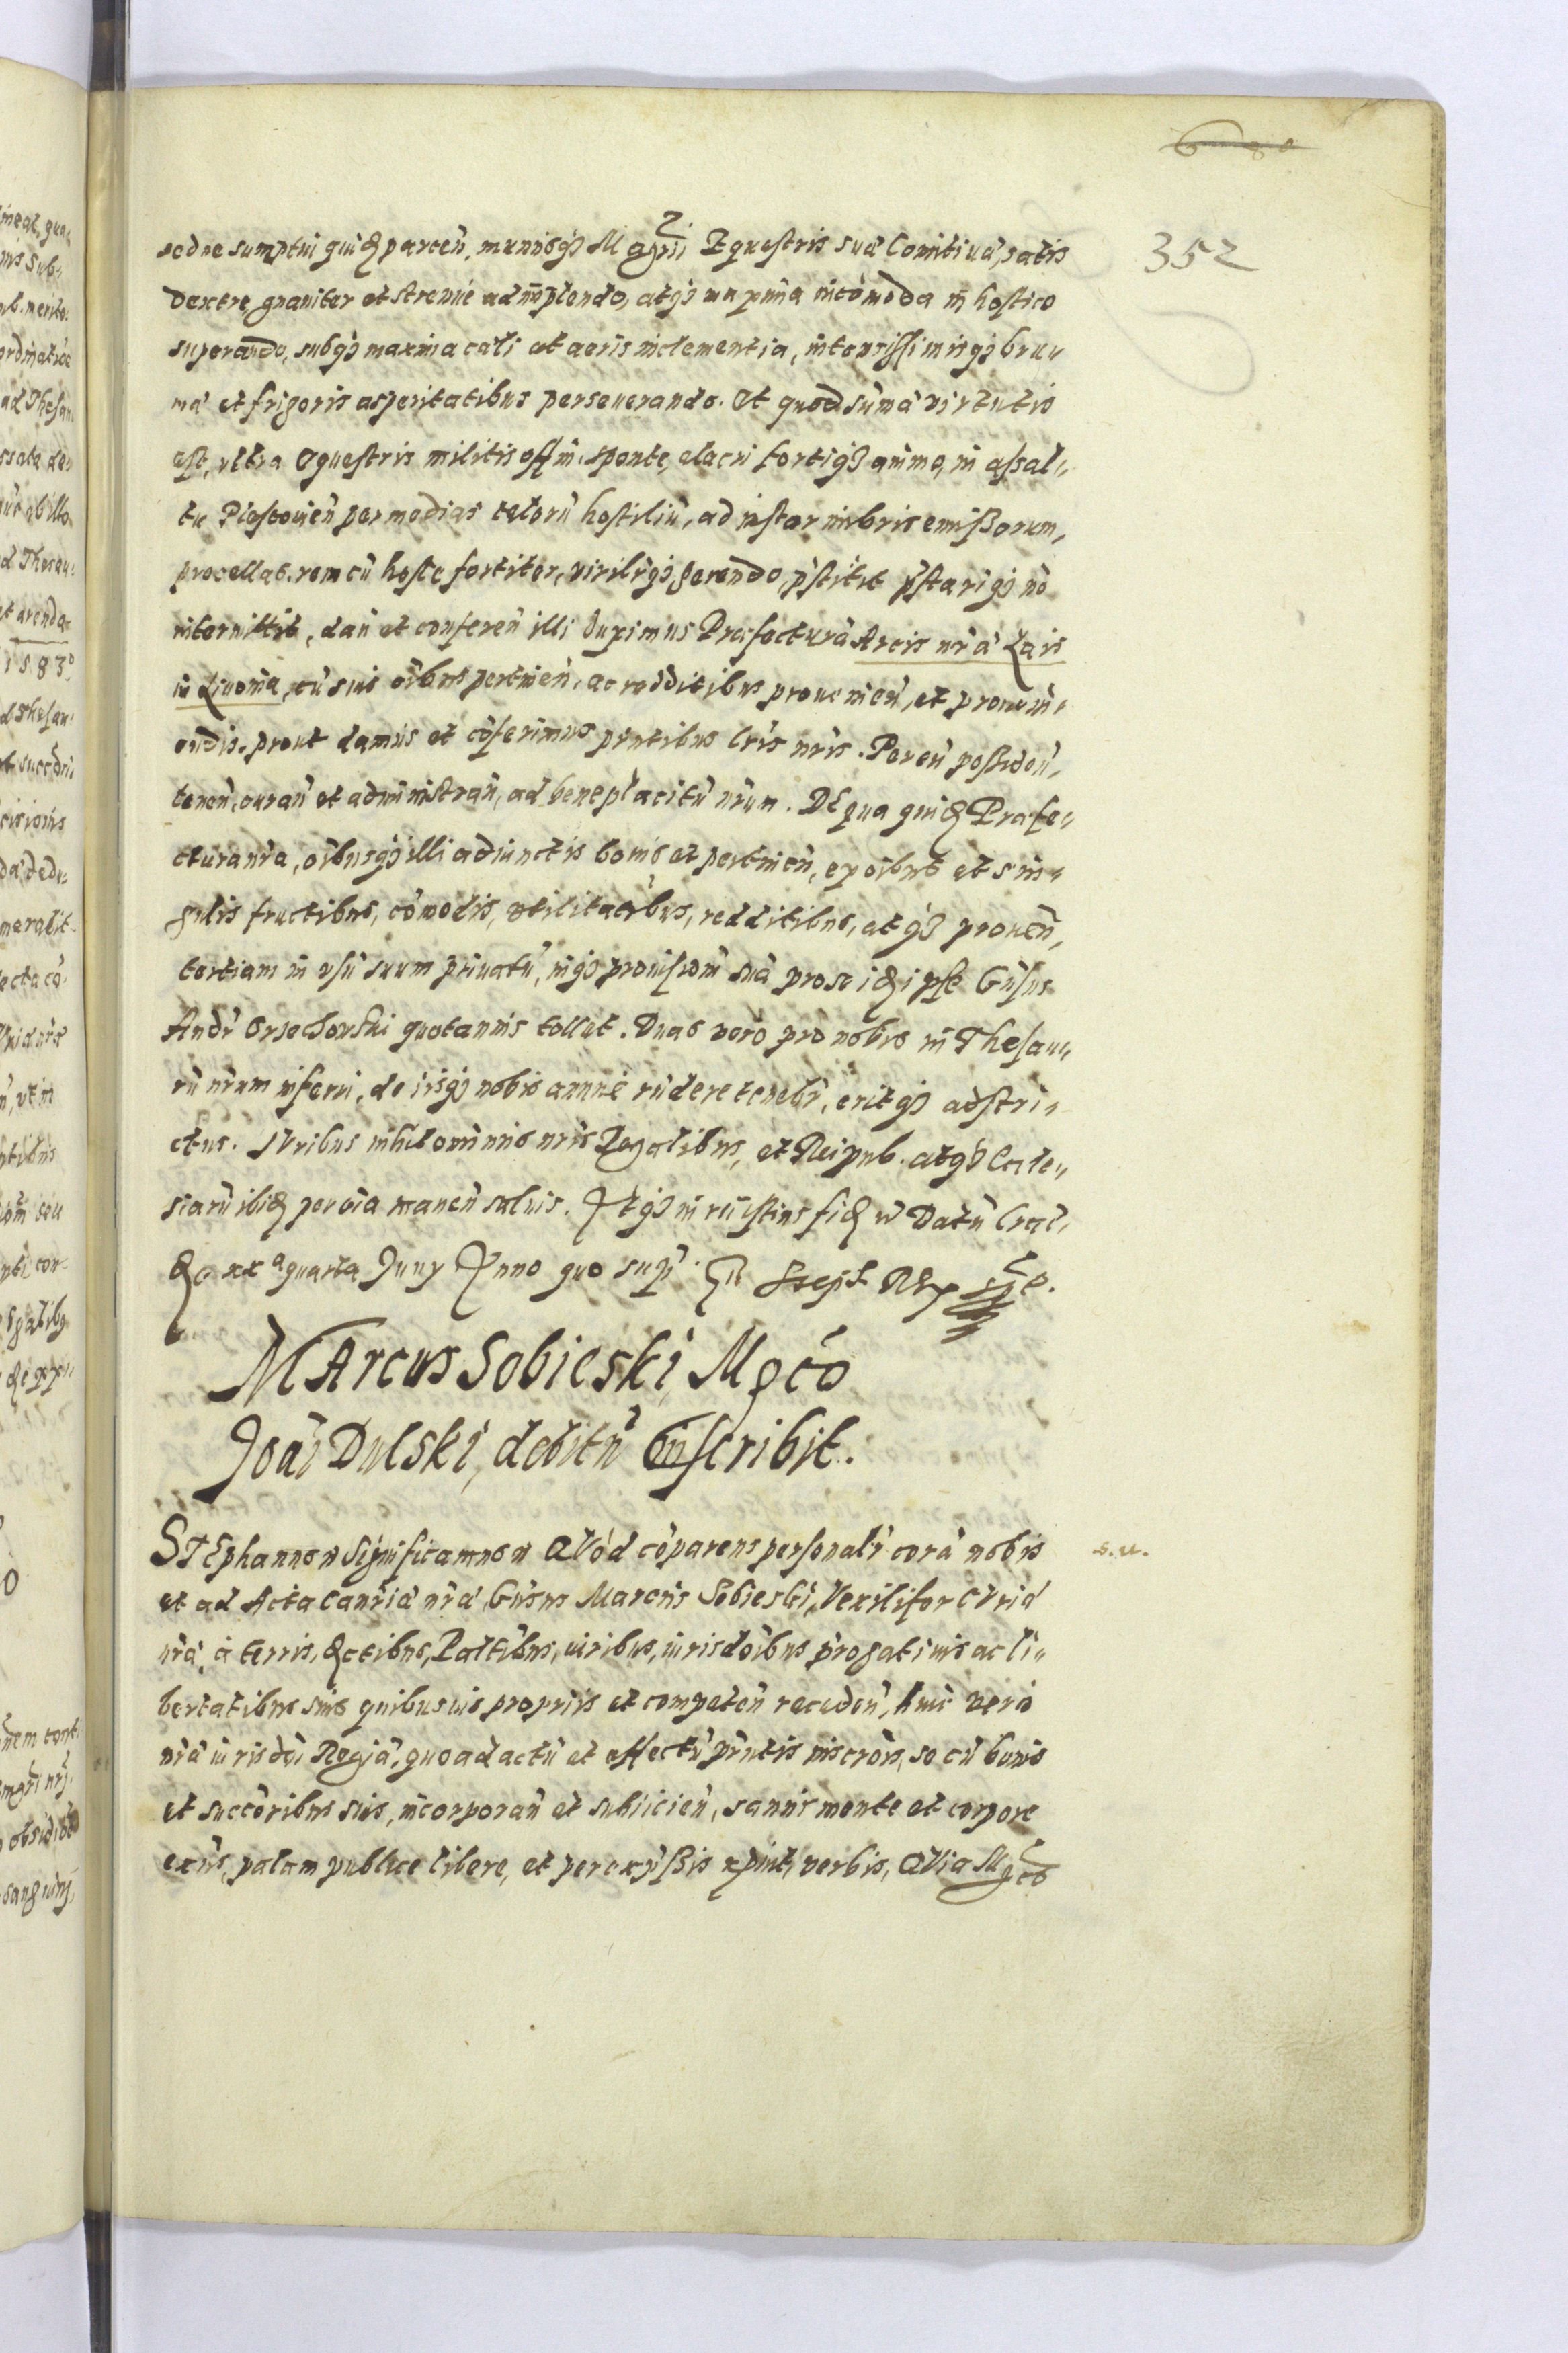 352
sed ne sumptui quidem parcen, munisque Magrii Equestris sua Comitiua, satis
dextre, gnauiter et strenue adimplendo, atque maxima incomoda in hostico
superando, subque maxima cali et aeris inclementia, intensissimisque bru„
ma et frigoris asperitatibus perseuerando. Et quod suma virtutis
est, vltra Equestris militis offm. sponte, alacri fortique animo, in assal„
tu Plescouien per medias telorū hostiliū, ad instar imbris emissorum,
procellas. rem cū hoste fortiter, viriliterque gerendo, pstitit pstarique nō
intermittit, dan et conferen illi duximus Prafecturā Arcis nra Lais
in Liuonia, cū suis oibus pertinen, ac redditibus prouenien, et proueni„
endis. prout damus et cōferimus pntibus lris nris. Per eū possiden,
tenen, curan et administran, ad beneplacitū nrum. DE qua quidem Prafe„
ctura nra, oibusque illi adiunctis bonis et pertinen, ex oibus et sin„
gulis fructibus, cōmodis, vtilitatibus, redditibus, atque prouen,
tertiam in vsū suum priuatū, inque prouisionē suā pro se idem ipse Gnsus
Andr Orsechowski quotannis tollet. Duas vero pro nobis in Thesau„
rū nrum inferri, de iisque nobis annue rndere tenebr, eritque adstri„
ctus. IVribus nihilominus nris Regalibus, et Reipub. atque Eccle„
siarū ibidem per oia manen saluis. In
xx quarta Juny Anno quo sup.
MArcus Sobieski Mgco
Joāi Dulski, debitū inscribit.
STEphannus Significamus QVod cōparens personalr corā nobis
s. u.
et ad Acta Cancria nra, Gnsus Marcus Sobieski, Vexilifer CVria
nra, à terris, Palatibus, iuribus, iurisdoibus progatiuis ac li„
bertatibus suis quibusuis propriis et competen receden, huic vero
nra iurisdoi Regia, quo ad actū et effectū pntis inscrois, se cū bonis
et succoribus suis, incorporan et subiicien, sanus mente et corpore
exns, palam publice libere, et per expssis verbis, QVia Mgco